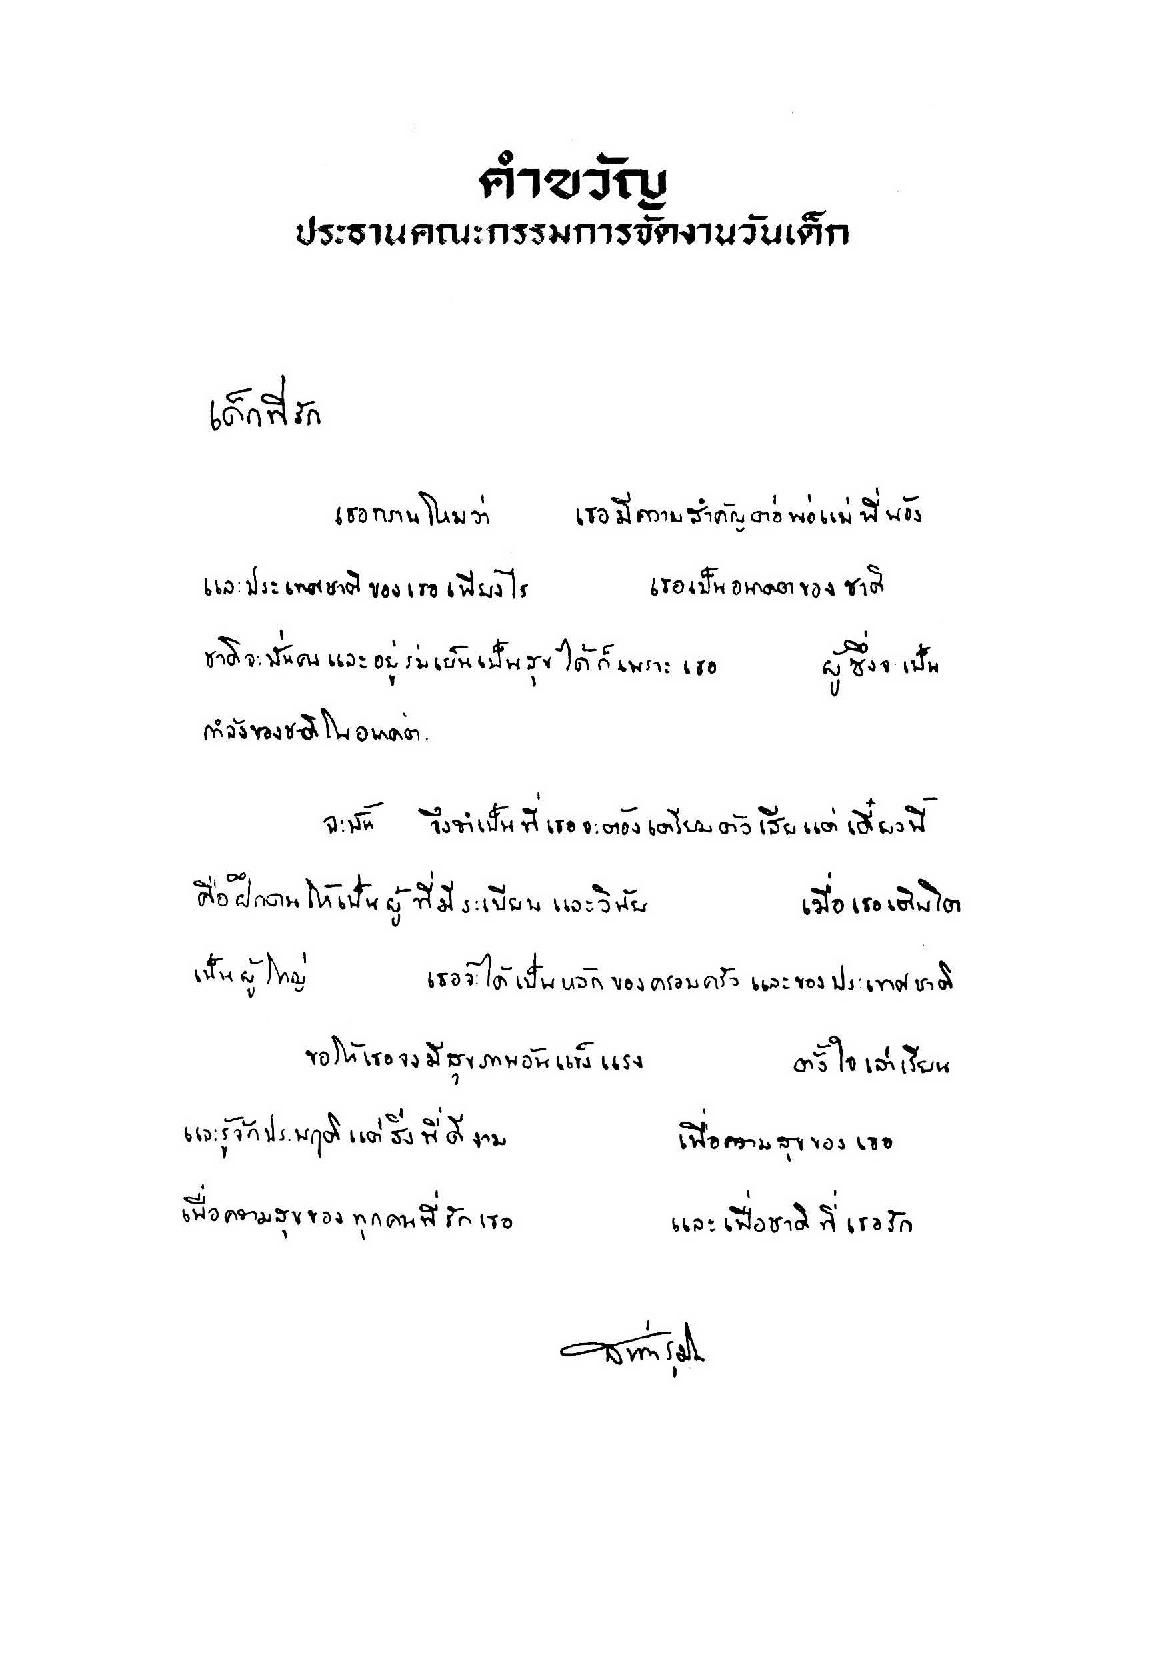 คำขวัญ
ประธานคณะกรรมการจัดงานวันเด็ก
เด็กที่รัก
เธอทราบไหมว่า เธอมีความสำคัญต่อพ่อแม่ พี่น้อง
และประเทศชาติของเธอเพียงไร เธอเป็นอนาคตของชาติ
ชาติจะมั่นคงและอยู่ร่มเย็นเป็นสุขได้ก็เพราะเธอ ผู้ซึ่งจะเป็น
กำลังของชาติในอนาคต.
ฉะนั้น จึงจำเป็นที่เธอจะต้องเตรียมตัวเสียแต่เดี๋ยวนี้
คือฝึกตนให้เป็นผู้ที่มีระเบียบและวินัย เมื่อเธอเติบโต
เป็นผู้ใหญ่ เธอจะได้เป็นหลักของครอบครัวและของประเทศชาติ
ขอให้เธอจงมีสุขภาพอันแข็งแรง ตั้งใจเล่าเรียน
และรู้จักประพฤติแต่สิ่งที่ดีงาม เพื่อความสุขของเธอ
เพื่อความสุขของทุกคนที่รักเธอ และเพื่อชาติที่เธอรัก